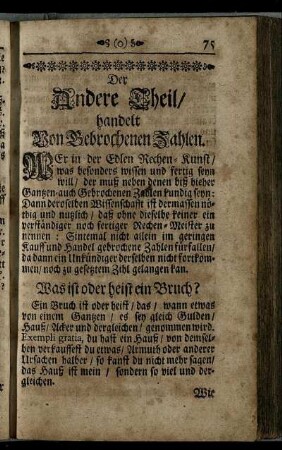 § (o) § 75
Der
Andere Theil/
handelt
Von Gebrochenen Zahlen.
WEr in der Edlen Rechen-Kunst/
was besonders wissen und fertig seyn
will/ der muß neben denen biß bieher
Gantzen auch Gebrochenen Zahlen kundig seyn:
Dann deroselben Wissenschafft ist dermassen nö-
thig und nutzlich/ daß ohne dieselbe keiner ein
verständiger noch fertiger Rechen-Meister zu
nennen: Sintemal nicht allein im geringen
Kauff und Handel gebrochene Zahlen fürfallen/
da dann ein Unkündiger derselben nicht fortkom-
men/ noch zu gesetztem Zihl gelangen kan.
Was ist oder heist ein Bruch?
Ein Bruch ist oder heist/ das/ wann etwas
von einem Gantzen/ es sey gleich Gulden/
Hauß/ Aker und dergleichen/ genommen wird.
Exempli gratia, du hast ein Hauß/ von demsel-
ben verkauffest du etwas/ Armuth oder anderer
Ursachen halber/ so kanst du nicht mehr sagen/
das Hauß ist mein/ sondern so viel und der-
gleichen.
Wie